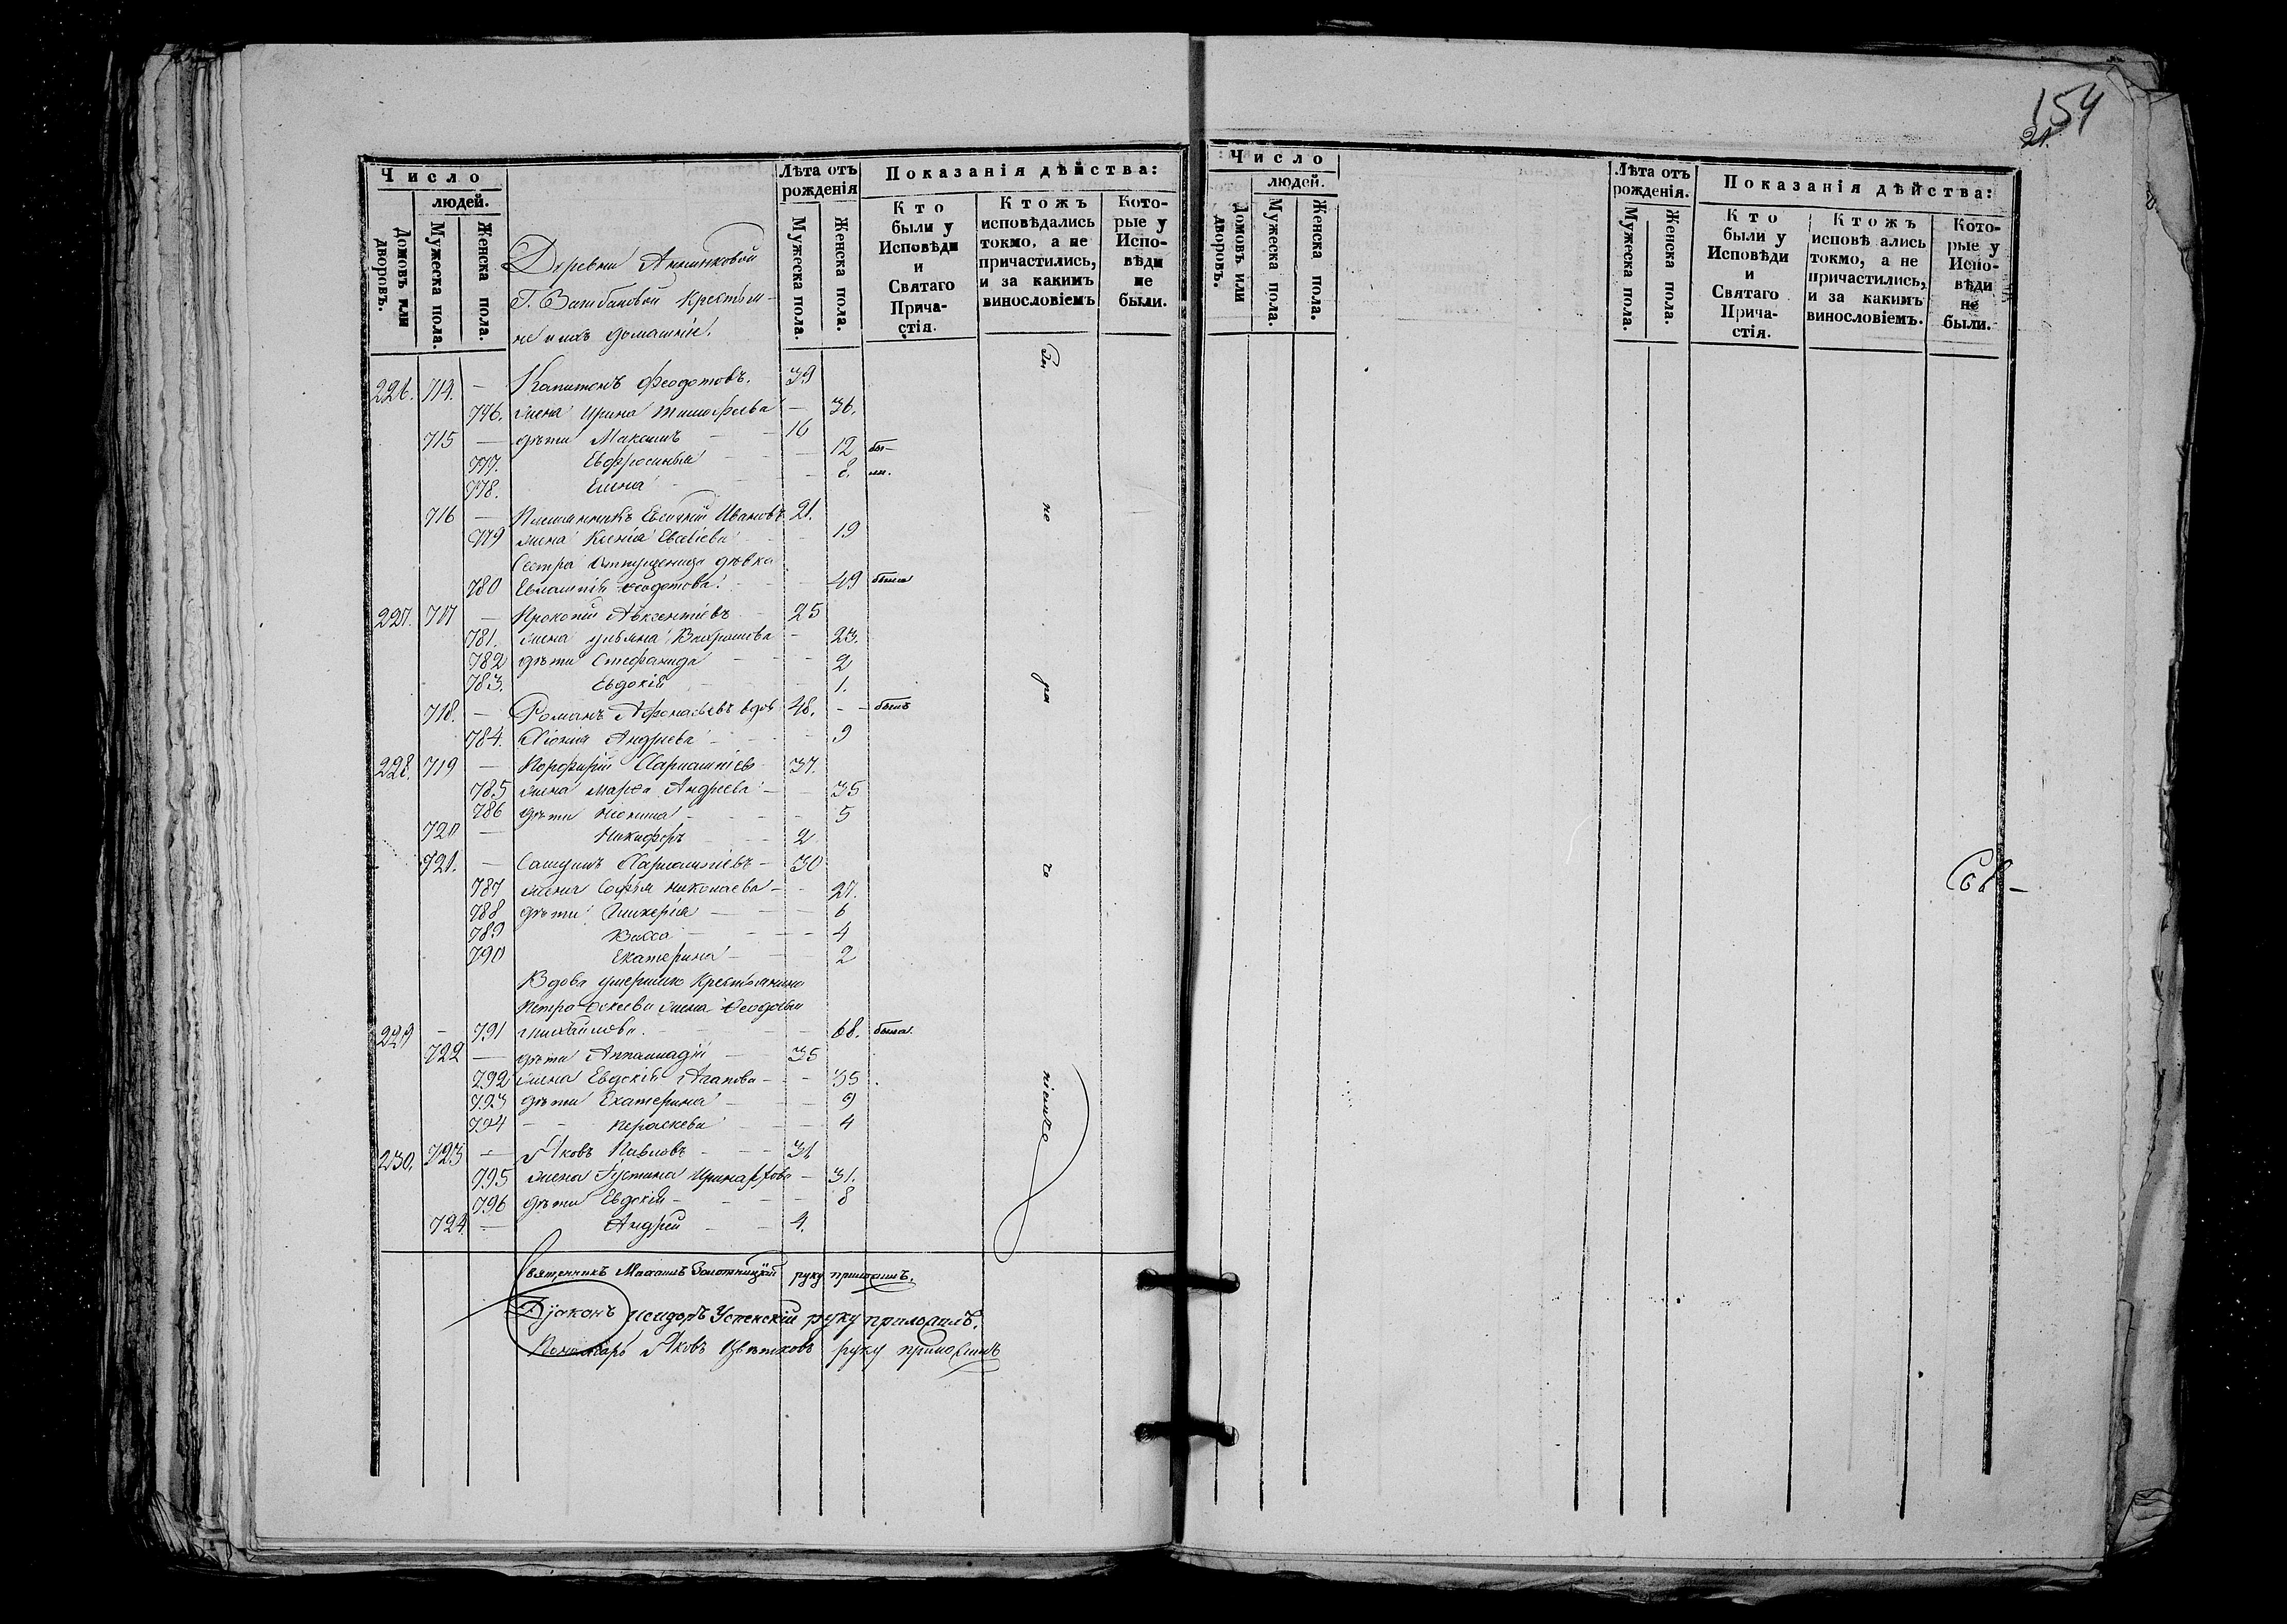 Число
людей.
Домовъ или дворовъ.
Мужеска пола.
Женска пола.
Лѣта отъ рожденія
Мужеска пола.
Женска пола.
Показанія дѣйства:
Кто были у Исповѣди и Святаго Прича-стія.
Ктожъ исповѣдались токмо, а не причастились, и за какимъ винословіемъ
Кото-рые у Испо-вѣди не были.
Деревни
Г. крестья-
не и ихъ домашніе.
226. 714. — Капитонъ Феодотовъ. 39
776. жена Ирина Тимофеева — 36.
715 — дѣти Максимъ — 16
777. Евфросинья — 12 бы-
778. Елена — 8. ли.
716 — Племянникъ Евгеній Ивановъ 21.
779 жена Ксенія — 19
Сестра дѣвка
780 Феодотова. — 49 была
227. 717 — Прокопій Авксентіевъ 25
781. жена Ульяна — 23.
782 дѣти Стефанида — 2
783. Евдокія 1.
718. — Романъ Афонасьевъ вдов 48. — была
784. Хіонія Андреева — 9
228. 719 — Порфирій Харлампіев 37.
785 жена Марѳа Андреева — 35
786 дѣти — 5
720 — Никифоръ — 2
721. — Харлампіевъ — 30
787 жена Софья Николаева — 27.
788 дѣти Гликерія — 6
789 Васса — 4
790 Екатерина — 2
Вдова умершаго Крестьянина
Петра жена Ѳеодосья
229 — 791 Михайлова. — 68. была.
722 — дѣти — 35
792 жена Евдокія Агапова — 35
793 дѣти Екатерина — 9
794 — Параскева 4
230. 723 — Яковъ Павловъ — 31
795 жена Іустина — 31.
796 дѣти Евдокія — 8
724. — Андрей — 4.
За
не
ра
че
ніемъ
Священникъ Михаилъ Золотницкій руку приложилъ.
Діаконъ Исидоръ Успенскій руку приложилъ.
Пономарь Яковъ Цвѣтковъ руку приложилъ
154
21.
Число
людей.
Домовъ или дворовъ.
Мужеска пола.
Женска пола.
Лѣта отъ рожденія.
Мужеска пола.
Женска пола.
Показанія дѣйства:
Кто были у Исповѣди и Святаго Прича-стія.
Ктожъ исповѣ ались токмо, а не причастились, и за какимъ винословіемъ.
Кото-рые у Испо-вѣди не были.
Сов-